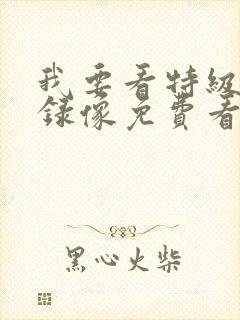 我要看特级
録像免費看
黑心火柴